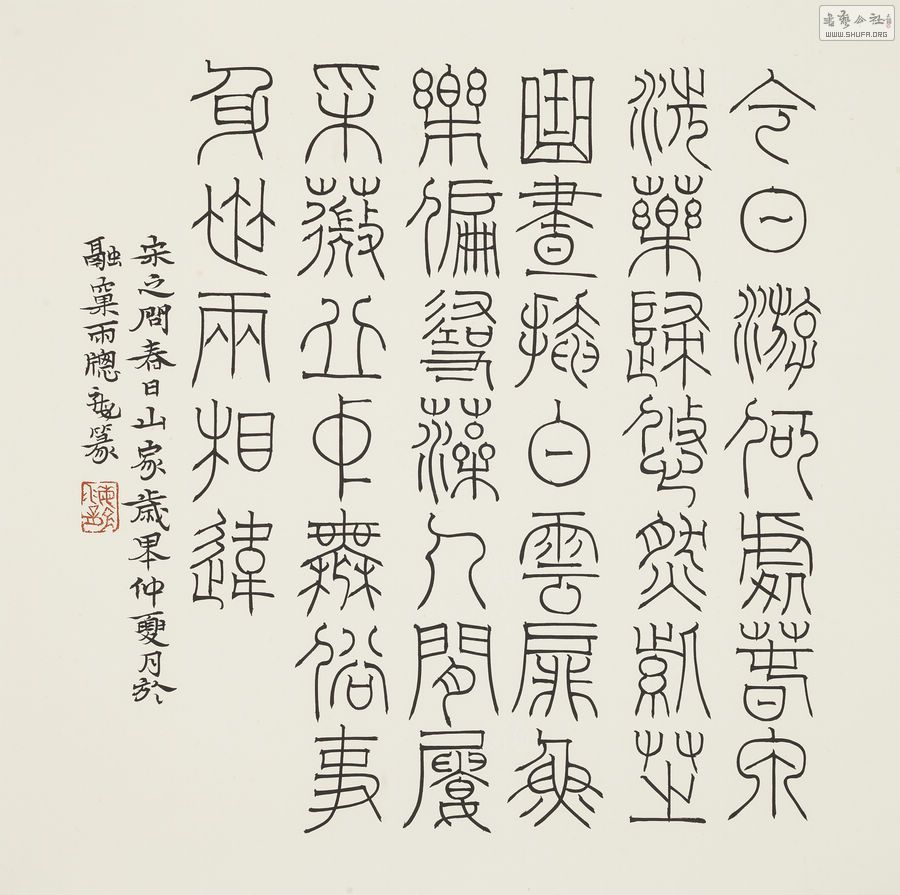 今日游何處春泉
洗藥歸悠然紫芝
曲晝掩白雲扉魚
樂偏尋藻人閒屢
采薇丘中無俗事
身世兩相違
宋之問春日山家歲仲夏月於
融窠雨牕篆
WWW.SHUFA.ORG